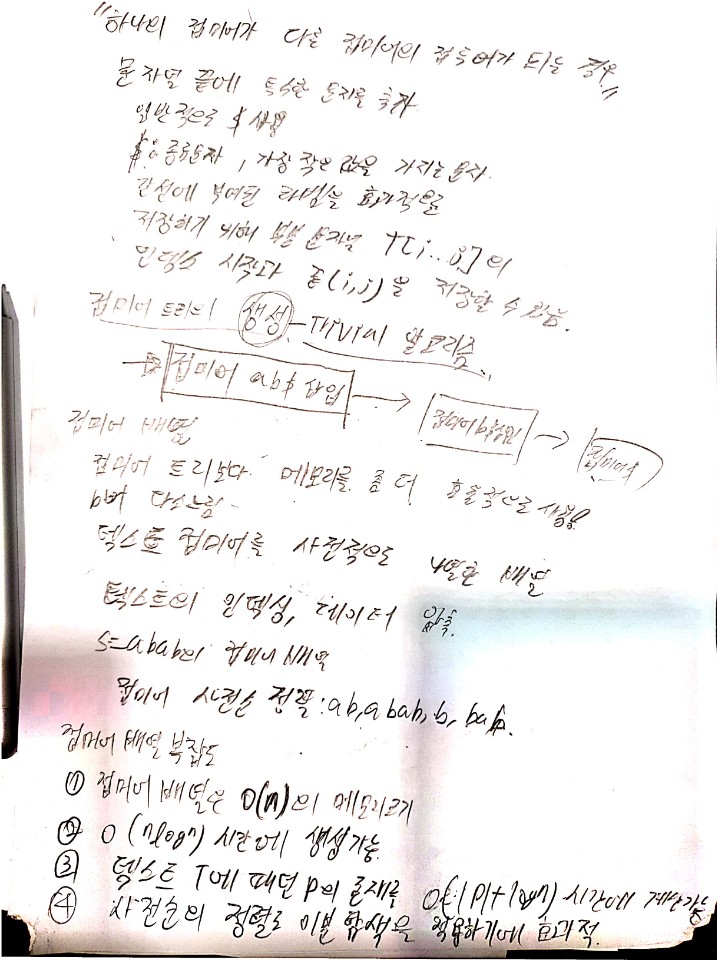 "하나의 접미어가 다른 접미어의 접두어가 되는 경우"
문자열 끝에 특수한 문자를 추가
일반적으로 $ 사용
$: 종류문자, 가장 작은 값을 가지는 문자.
간선에 부여된 라벨을 효과적으로
저장하기 위해 부분 문자열 T[i...j]의
인덱스 시작과 끝(i,j)을 저장할 수 있음.
접미어 트리의 생성 - Trivial 알고리즘
→ 접미어 ab$ 삽입 → 접미어 b$삽입 → 접미어$
접미어 배열
접미어 트리보다 메모리를 좀 더 효율적으로 사용!
but 다소느림.
텍스트 접미어를 사전적으로 나열한 배열
텍스트의 인덱싱, 데이터 압축.
S=abab의 접미어 배열
접미어 사전순 정렬: ab, abab, b, bab.
접미어 배열 복잡도
① 접미어 배열은 O(n)의 메모리크기
② O(nlogn) 시간에 생성가능
③ 텍스트 T에 패턴 P의 존재를 O(|P|+logn) 시간에 계산가능
④ 사전순의 정렬로 이분탐색을 적용하기에 효과적.